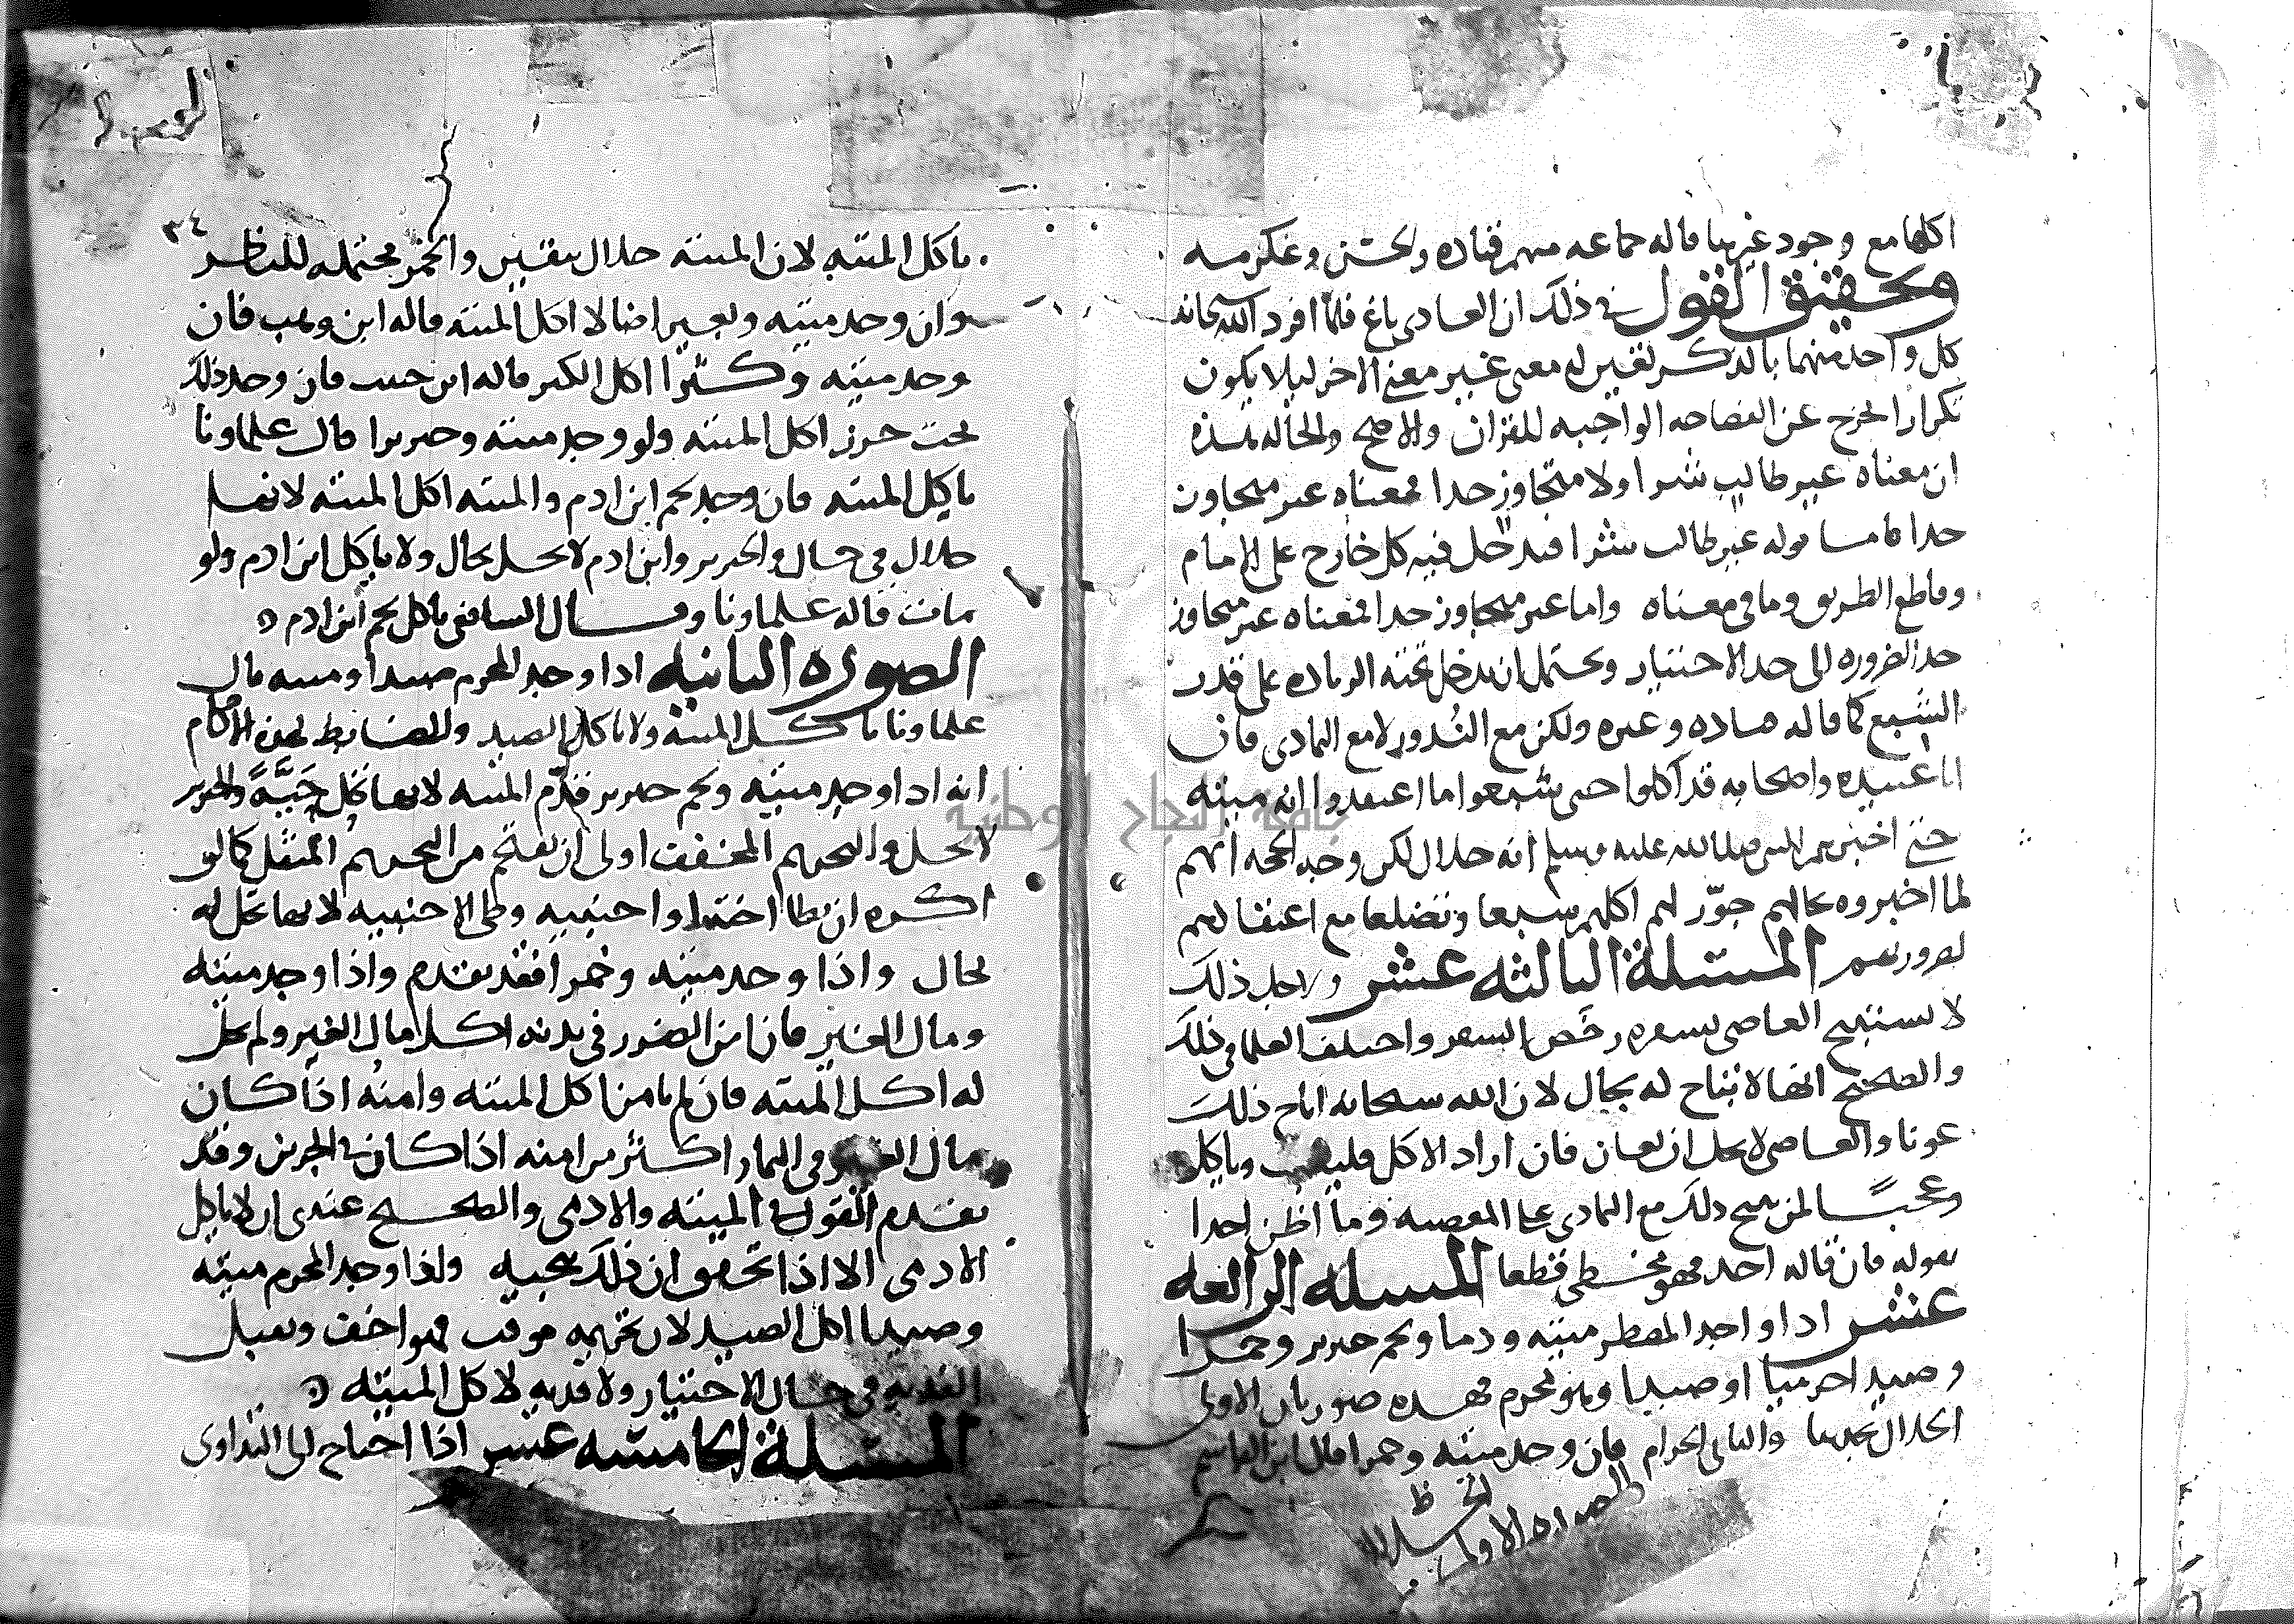 اكلها مع وجود غيرها قاله جماعه منهم قتاده والحسن وعكرمه
وتحقيق القول في ذلك ان العادي باغ فلما افرد الله سبحانه
كل واحد منهما بالذكر تعين له معنى غير معنى الاخر ليلا يكون
تكرارا يخرج عن الفصاحه الواجبه للقران والاصح والحاله هذه
ان معناه غير طالب شرا ولا متجاوز حدا فمعناه غير متجاوز
حدا فاما قوله غير طالب شرا فيدخل فيه كل خارج على الامام
وقاطع الطريق وما في معناه واما غير متجاوز حدا فمعناه غير متجاوز
حد الضروره الى حد الاختيار ويحتمل ان يدخل تحته الزياده على قدر
الشبع كما قاله قتاده وغيره ولكن مع الندور لا مع التمادي فان
ابا عبيده واصحابه قد اكلوا حتى شبعوا مما اعتقدوا انه ميته
حتى اخبرهم النبي صلى الله عليه وسلم انه حلال لكن وجه الحجه انهم
لما اخبروه بحالهم جوز لهم اكلهم شبعا وتضلعا مع اعتقادهم
لضرورتهم المسئلة الثالثه عشر ولاجل ذلك
لا يستبيح العاصي بسفره رخص السفر واختلف العلما في ذلك
والصحيح انها لا تباح له بحال لان الله سبحانه اباح ذلك
عونا والعاصي لا يحل ان يعان فان اراد الاكل فليتب وياكل
وعجبا لمن يبيح ذلك مع التمادي على المعصيه وما اظن احدا
يقوله فان قاله احد فهو مخطي قطعا المسله الرابعه
عشر اذا واجد المضطر ميته ودما ولحم خنزير وخمرا
وصيدا حرميا او صيدا وهو محرم فهذه صورتان الاولى
الحلال يجدها والثاني الحرام فان وجد ميته وخمرا قال ابن القاسم
الصوره الاولى
ياكل الميته لان الميته حلال بيقين والخمر محتمله للنظر
وان وجد ميته وبعيرا ضالا اكل الميته قاله ابن وهب فان
وجد ميته وكنزا اكل الكنز قاله ابن حبيب فان وجد ذلك
تحت حرز اكل الميته ولو وجد ميته وخنزيرا قال علماونا
ياكل الميته فان وجد لحم ابن ادم والميته اكل الميته لانها
حلال في حال والخنزير وابن ادم لا يحل بحال ولا ياكل ابن ادم ولو
مات قاله علماونا وقال الشافعي ياكل لحم ابن ادم
الصوره الثانيه اذا وجد المحرم صيدا وميته قال
علماونا ياكل الميته ولا ياكل الصيد والضابط لهذه الاحكام
انه اذا وجد ميته ولحم خنزير قدم الميته لانها تحل حية والخنزير
لا يحل والتحريم المخفف اولى ان يقتحم من التحريم المثقل كما لو
اكره ان يطا اخته او اجنبيه وطي الاجنبيه لانها تحل له
بحال واذا وجد ميته وخمرا فقد تقدم واذا وجد ميته
ومال الغير فان امن الضرر في بدنه اكل مال الغير ولم يحل
له اكل الميته فان لم يامن اكل الميته وامنه اذا كان
مال الغير في الثمار اكثر من امنه اذا كان في الجرين وقد
تقدم القول في الميته والادمي والصحيح عندي ان لا ياكل
الادمي الا اذا تحقق ان ذلك ينجيه واذا وجد المحرم ميته
وصيدا اكل الصيد لان تحريمه موقت فهو اخف وتقبل
الفديه في حال الاختيار ولا فديه لاكل الميته
المسئلة الخامسه عشر اذا احتاج الى التداوي